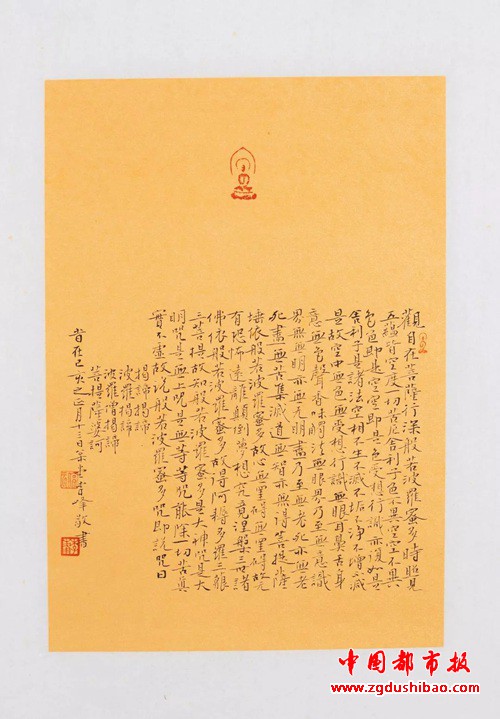 觀自在菩薩行深般若波羅蜜多時照見
五蘊皆空度一切苦厄舍利子色不異空空不異
色色即是空空即是色受想行識亦復如是
舍利子是諸法空相不生不滅不垢不淨不增不減
是故空中無色無受想行識無眼耳鼻舌身
意無色聲香味觸法無眼界乃至無意識
界無無明亦無無明盡乃至無老死亦無老
死盡無苦集滅道無智亦無得菩提薩
埵依般若波羅蜜多故心無罣礙無罣礙故無
有恐怖遠離顛倒夢想究竟涅槃三世諸
佛依般若波羅蜜多故得阿耨多羅三藐
三菩提故知般若波羅蜜多是大神咒是大
明咒是無上咒是無等等咒能除一切苦真
實不虛故說般若波羅蜜多咒即說咒曰
揭諦揭諦
波羅揭諦
波羅僧揭諦
菩提薩婆訶
旹在己亥之正月十三日敬書
中国都市报
www.zgdushibao.com